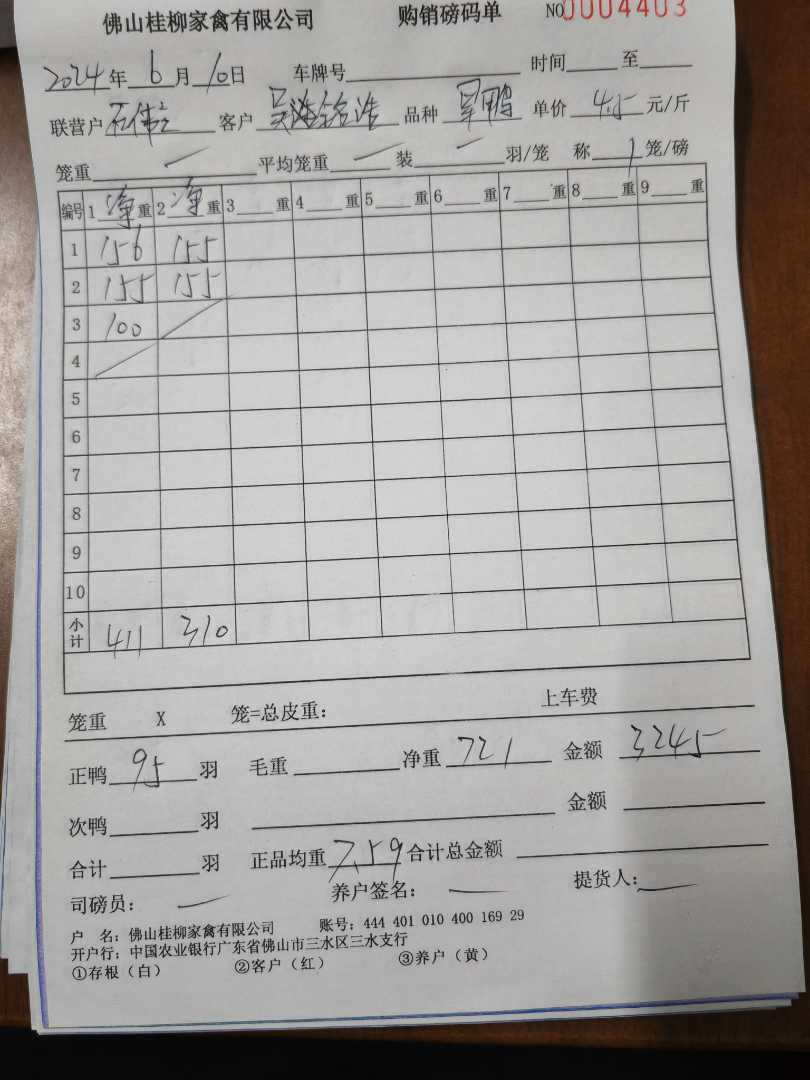 佛山桂柳家禽有限公司 购销磅码单 NO0004403
2024年6月10日 车牌号 时间 至
联营户 客户 品种 鸭 单价 4.5 元/斤
笼重 一 平均笼重 一 装 一 羽/笼 称 1 笼/磅
编号 1 净 重 2 净 重 3 重 4 重 5 重 6 重 7 重 8 重 9 重
1 156 155
2 155 155
3 100
4
5
6
7
8
9
10
小计 411 310
笼重 X 笼=总皮重: 上车费
正鸭 95 羽 毛重 净重 721 金额 3245
次鸭 羽 金额
合计 羽 正品均重 7.59 合计总金额
司磅员: 一 养户签名: 一 提货人: 一
户 名: 佛山桂柳家禽有限公司 账号: 444 401 010 400 169 29
开户行: 中国农业银行广东省佛山市三水区三水支行
①存根（白） ②客户（红） ③养户（黄）